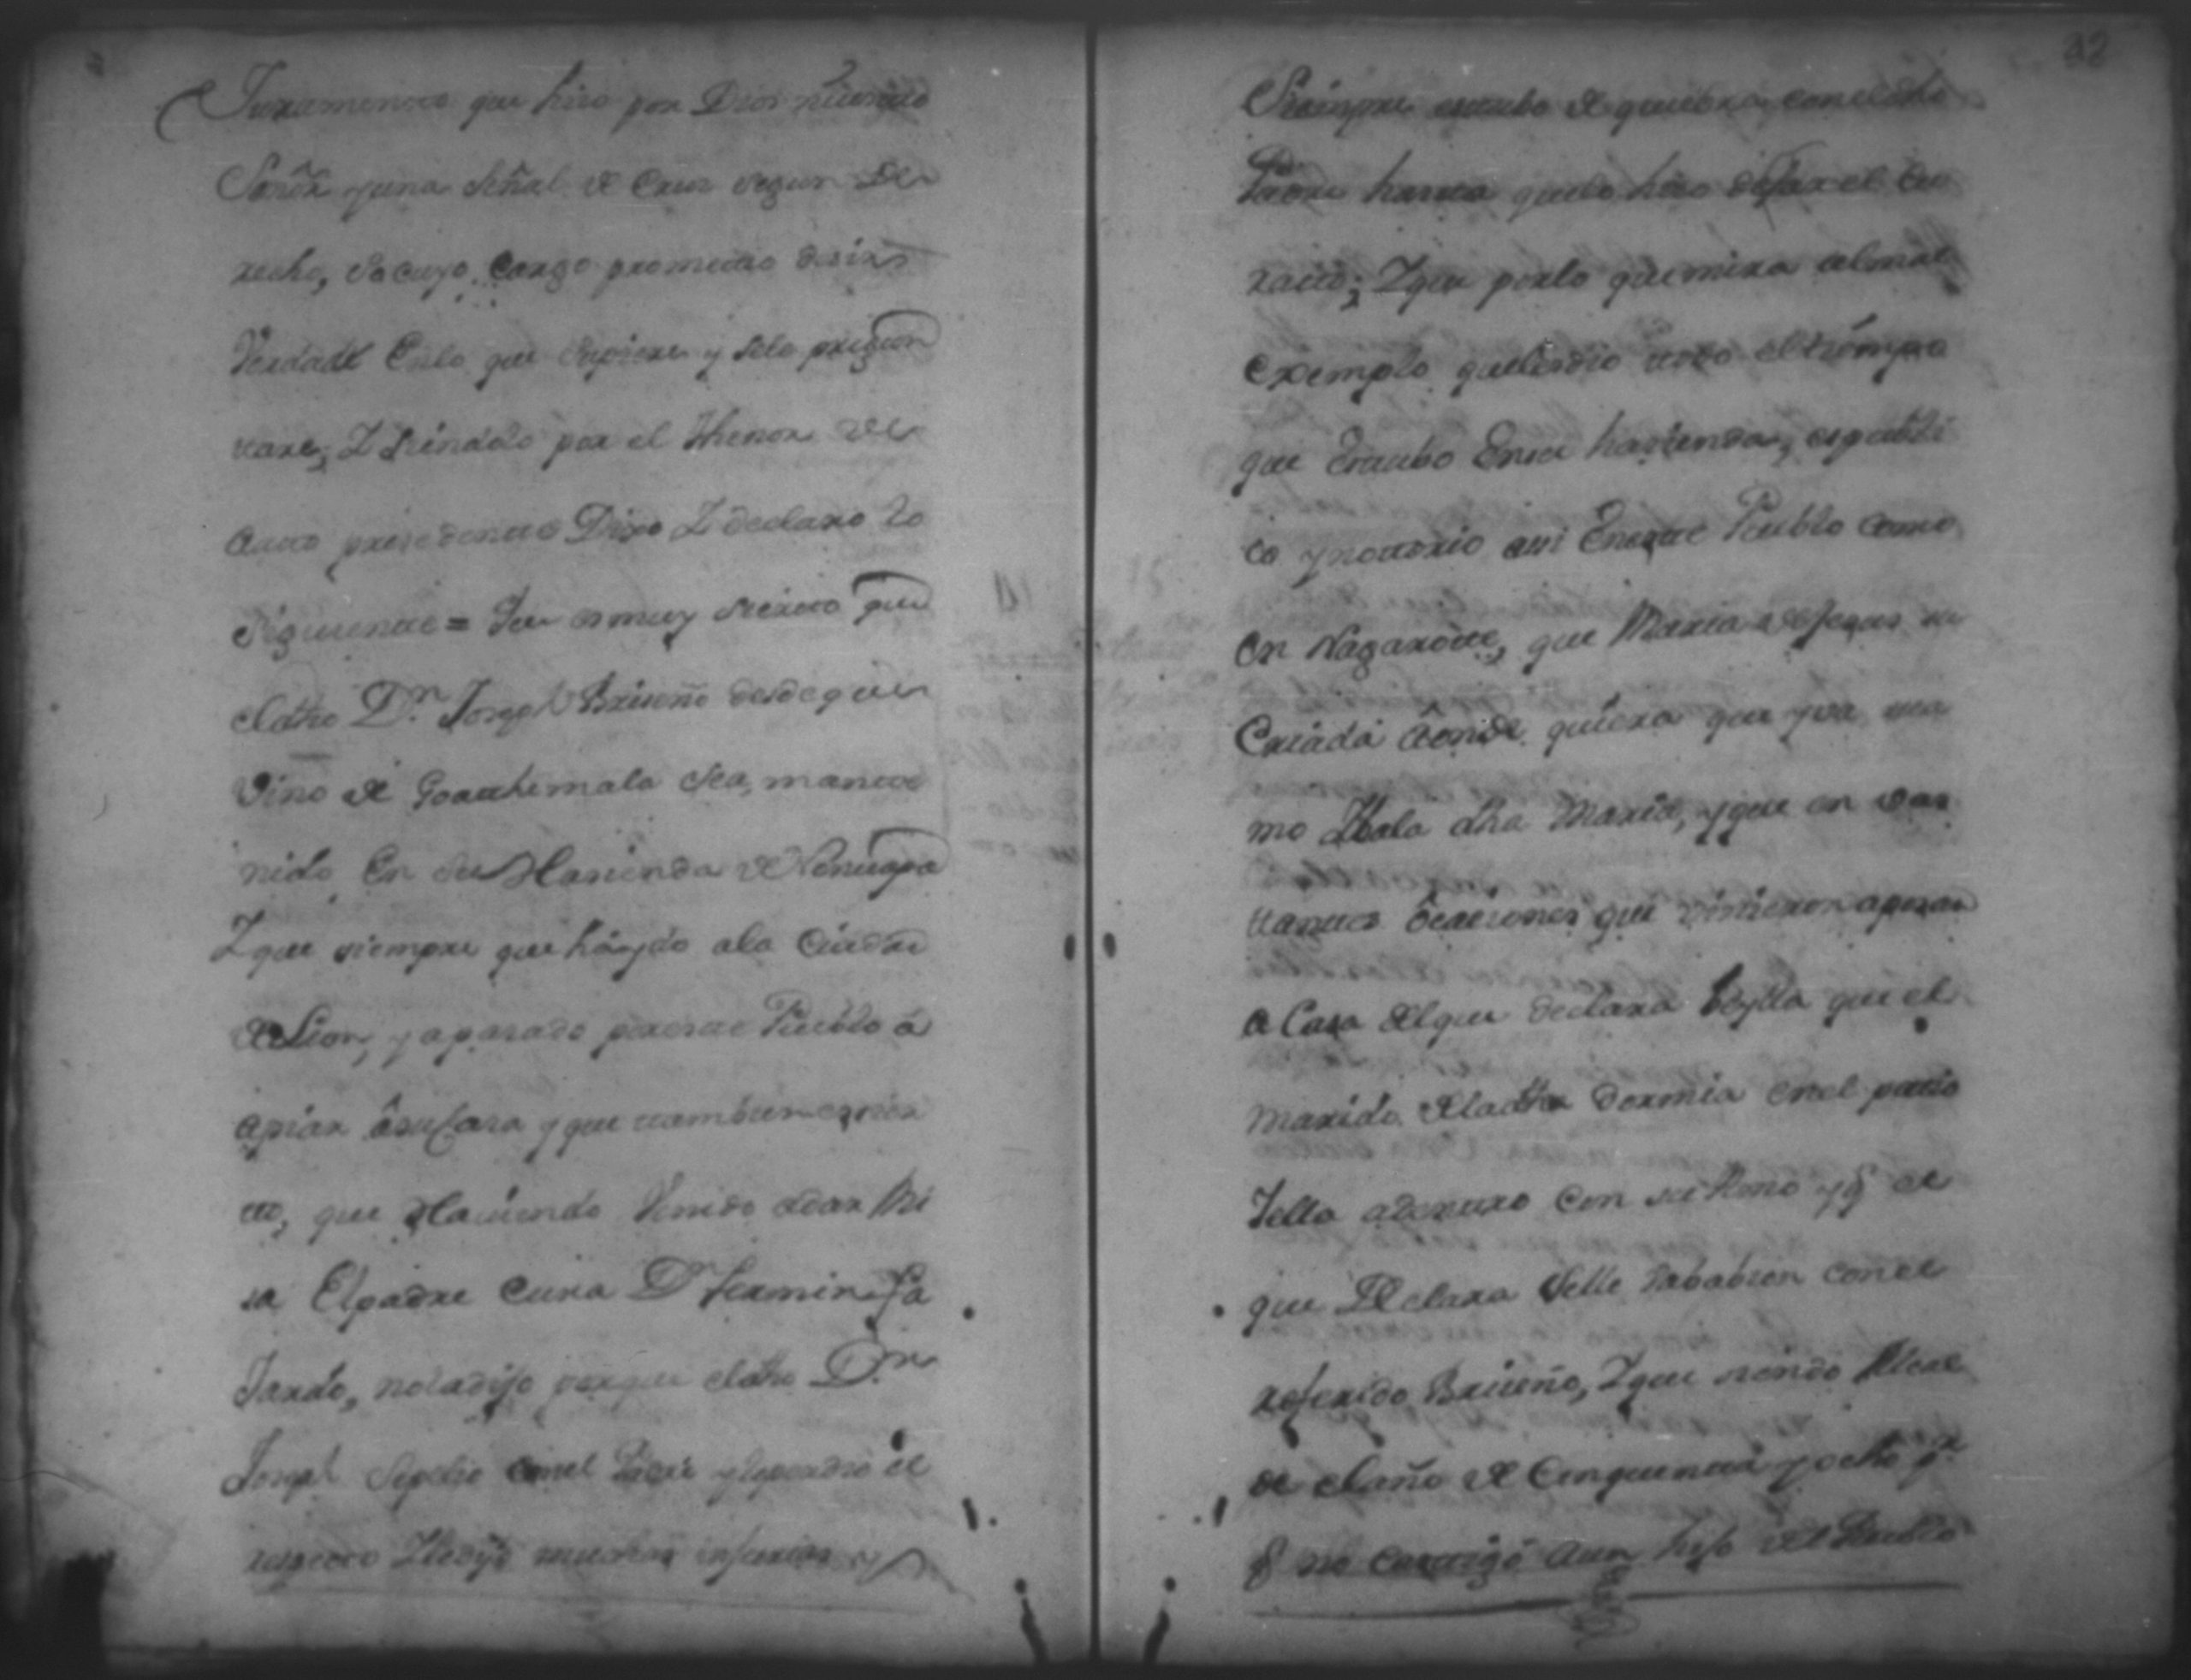 Juramento que hiso por Dios nuestro
Señor y una Señal de Cruz segun de
recho, so cuyo cargo prometio desir
Verdad En lo que supiere y sele pregun
tare; Y siendolo por el thenor del
auto presedente Dixo Y declaro lo
siguiente = Que es muy sierto que
el dho Dn Joseph Briseño desde que
vino de Goathemala sea mante
nido En su Hasienda de Nenuapa
Y que siempre que háydo ala Ciudad
de Leon, y a pasado por este Pueblo á
apiar â su Casa y que tambien es sier
to, que Haviendo Venido a dar Mi
sa El padre Cura Dn Fermin Fa
Jardo, no la dijo porque el dho Dn
Joseph Se peleo con el Padre y le perdio el
respecto Y le dijo muchas injurias y
32
Siempre estubo de quiebra con el dho
Padre hasta que lo hiso dejar el Cu
rato; Y que por lo que mira al mal
exemplo que les dio todo el tiempo
que Estubo En su hasienda, es publi
co y notorio asi En este Pueblo como
en Nagarote, que Maria de Jesus su
Criada donde quiera que yva su a
mo Yba la dha Maria, y que en vas
tantes ôcaciones que vinieron a posar
a Casa del que declara veylla que el
marido de la dha dormia en el patio
Y ella adentro con su Amo y q el
que Declara Selle dababien con el
referido Briseño, Y que siendo Alcal
de el año de Cinquenta y ocho pr
q no castigó a un hijo del Pueblo